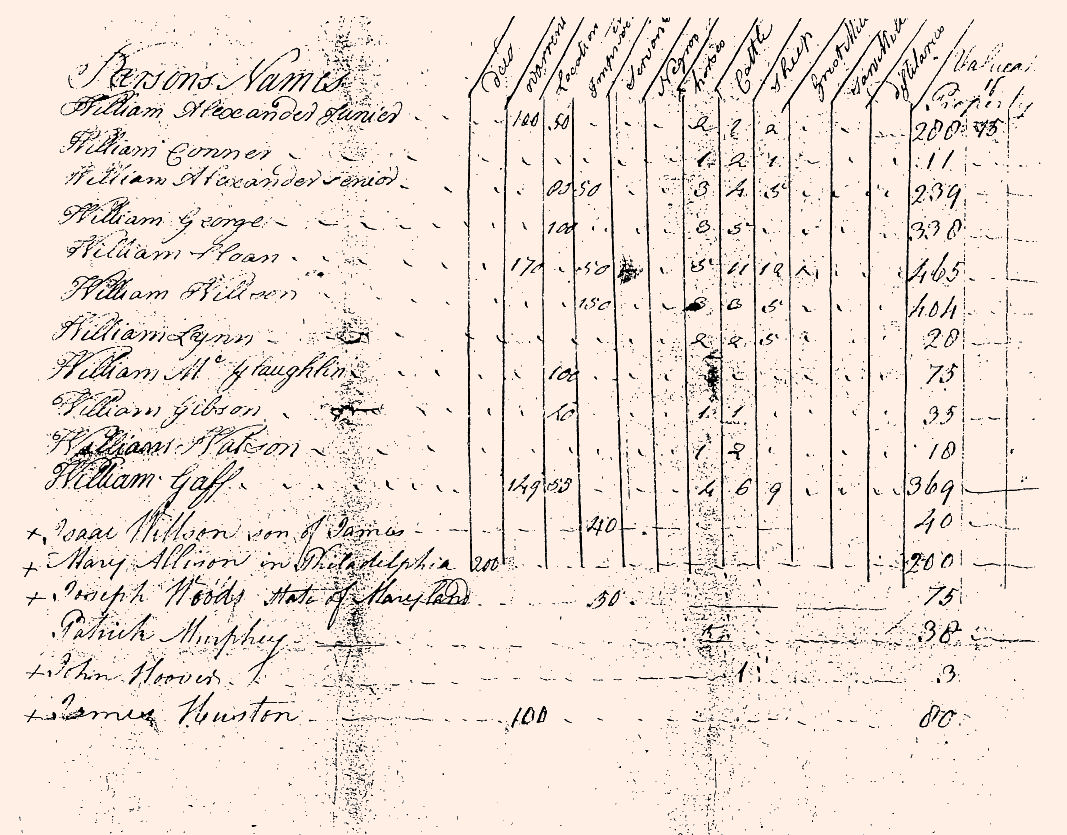 Persons Names Warrent Location Servants Negros horses Cattle Sheep Gristmill Sawmill Distileries Property
William Alexander Junior 100 50 2 2 2 200 75
William Conner 1 2 1 11
William Alexander senior 50 3 4 5 239
William George 100 3 5 338
William Sloan 170 50 5 11 12 465
William Willson 150 3 3 5 404
William Lynn 2 2 5 28
William Mc Glaughlin 100 75
William Gibson 1 1 35
William Watson 1 2 18
William Gaff 149 55 4 6 9 369
+ Isaac Willson son of James 40 40
+ Mary Allison in Philadelphia 200 200
+ Joseph Woods State of Maryland 50 75
Patrick Murphey 5 38
+ John Hoover 1 3
+ James Huston 100 80